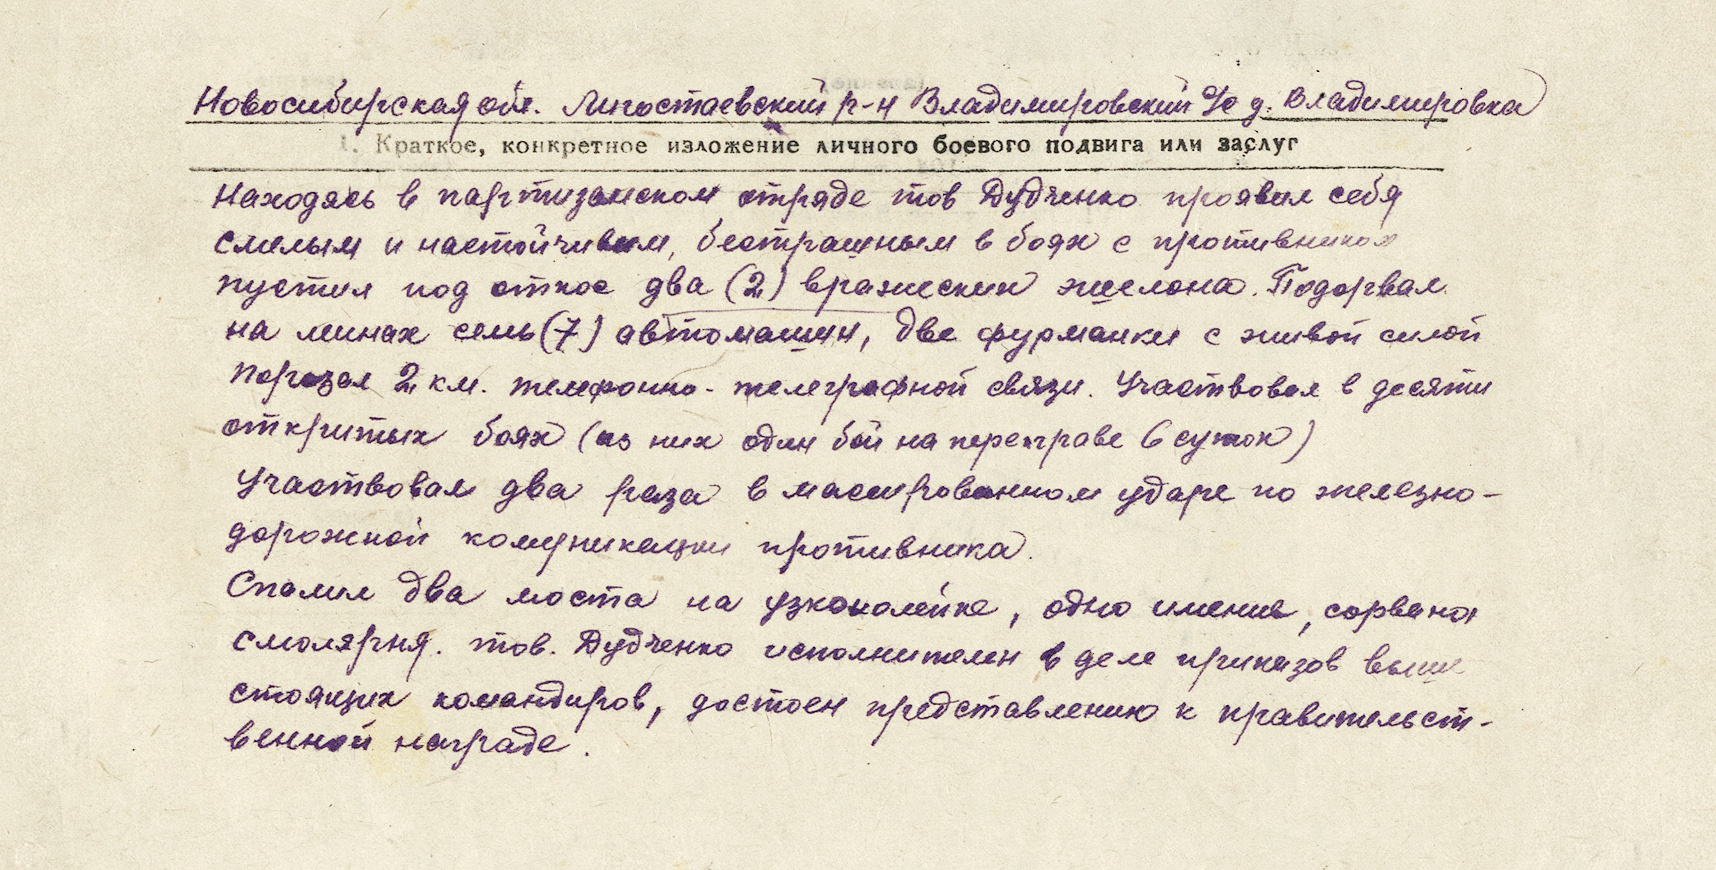 Новосибирская обл. Легостаевский р-н Владимировский с/с д. Владимировка
1. Краткое, конкретное изложение личного боевого подвига или заслуг
Находясь в партизанском отряде тов Дудченко проявил себя
смелым и настойчивым, бестрашным в боях с противником
пустил под откос два (2) вражеских эшелона. Подорвал
на минах семь (7) автомашин, две фурманки с живой силой
Порезал 2 км. телефонно-телеграфной связи. Участвовал в десяти
открытых боях (из них один бой на переправе 6 суток)
Участвовал два раза в масированном ударе по железно-
дорожной комуникации противника.
Спалил два моста на узкоколейке, одно имение, сорвана
смолярня. тов. Дудченко исполнителен в деле приказов выше
стоящих командиров, достоен представлению к правительст-
венной награде.